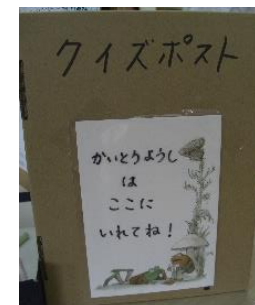 クイズポスト
かいとうようし
は
ここに
いれてね！